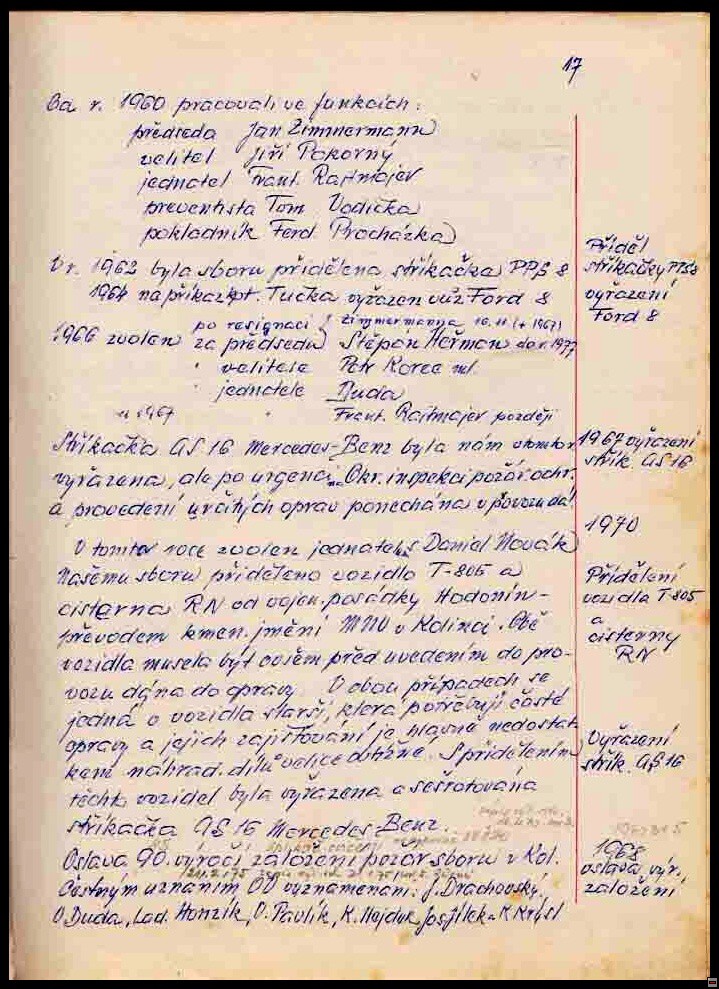 17
Od r. 1960 pracovali ve funkcích:
předseda Jan Zimmermann
velitel Jiří Pokorný
jednatel Frant. Rajtmajer
preventista Tom Vodička
pokladník Ferd. Procházka
V r. 1962 byla sboru přidělena stříkačka PPS 8
1964 na příkaz kpt. Tučka vyřazen vůz Ford 8
Příděl
stříkačky PPS 8
vyřazení
Ford 8
po resignaci Zimmermanna 16.11 (+ 1967)
1966 zvolen za předsedu Štěpán Heřman do r. 1977
" velitele Petr Korec ml.
" jednatele Duda
1967 " Frant. Rajtmajer později
Stříkačka AS 16 Mercedes-Benz byla nám
vyřazena, ale po urgenci na Okr. inspekci požár. ochr.
a provedení určitých oprav ponechána v provozu dál
1967 vyřazení
střík. AS 16
1970
V tomto roce zvolen jednatel s. Daniel Novák
Našemu sboru přiděleno vozidlo T-805 a
cisterna RN od vojen. posádky Hodonín -
převodem kmen. jmění MNV v Kolinci. Obě
vozidla musela být ovšem před uvedením do pro-
vozu dána do opravy. V obou případech se
jedná o vozidla starší, která potřebují časté
opravy a jejich zajišťování je hlavně nedostat-
kem náhrad. dílů velice obtížné. S přidělením
těcht. vozidel byla vyřazena a sešrotována
stříkačka AS 16 Mercedes Benz.
Přidělení
vozidla T-805
a
cisterny
RN
Vyřazení
střík. AS 16
Oslava 90. výročí založení požár sboru v Kol.
Čestným uznáním OV vyznamenáni: J. Drachovský,
O. Duda, Lad. Honzík, V. Pavlík, K. Hajduk, Jos. Jílek a K. Krýsl
1968
oslava výr.
založení